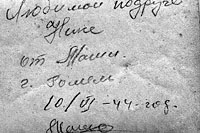 Любимой подруге
Нине
от Маши.
г. Гомель
10/VI-44 год.
Маша